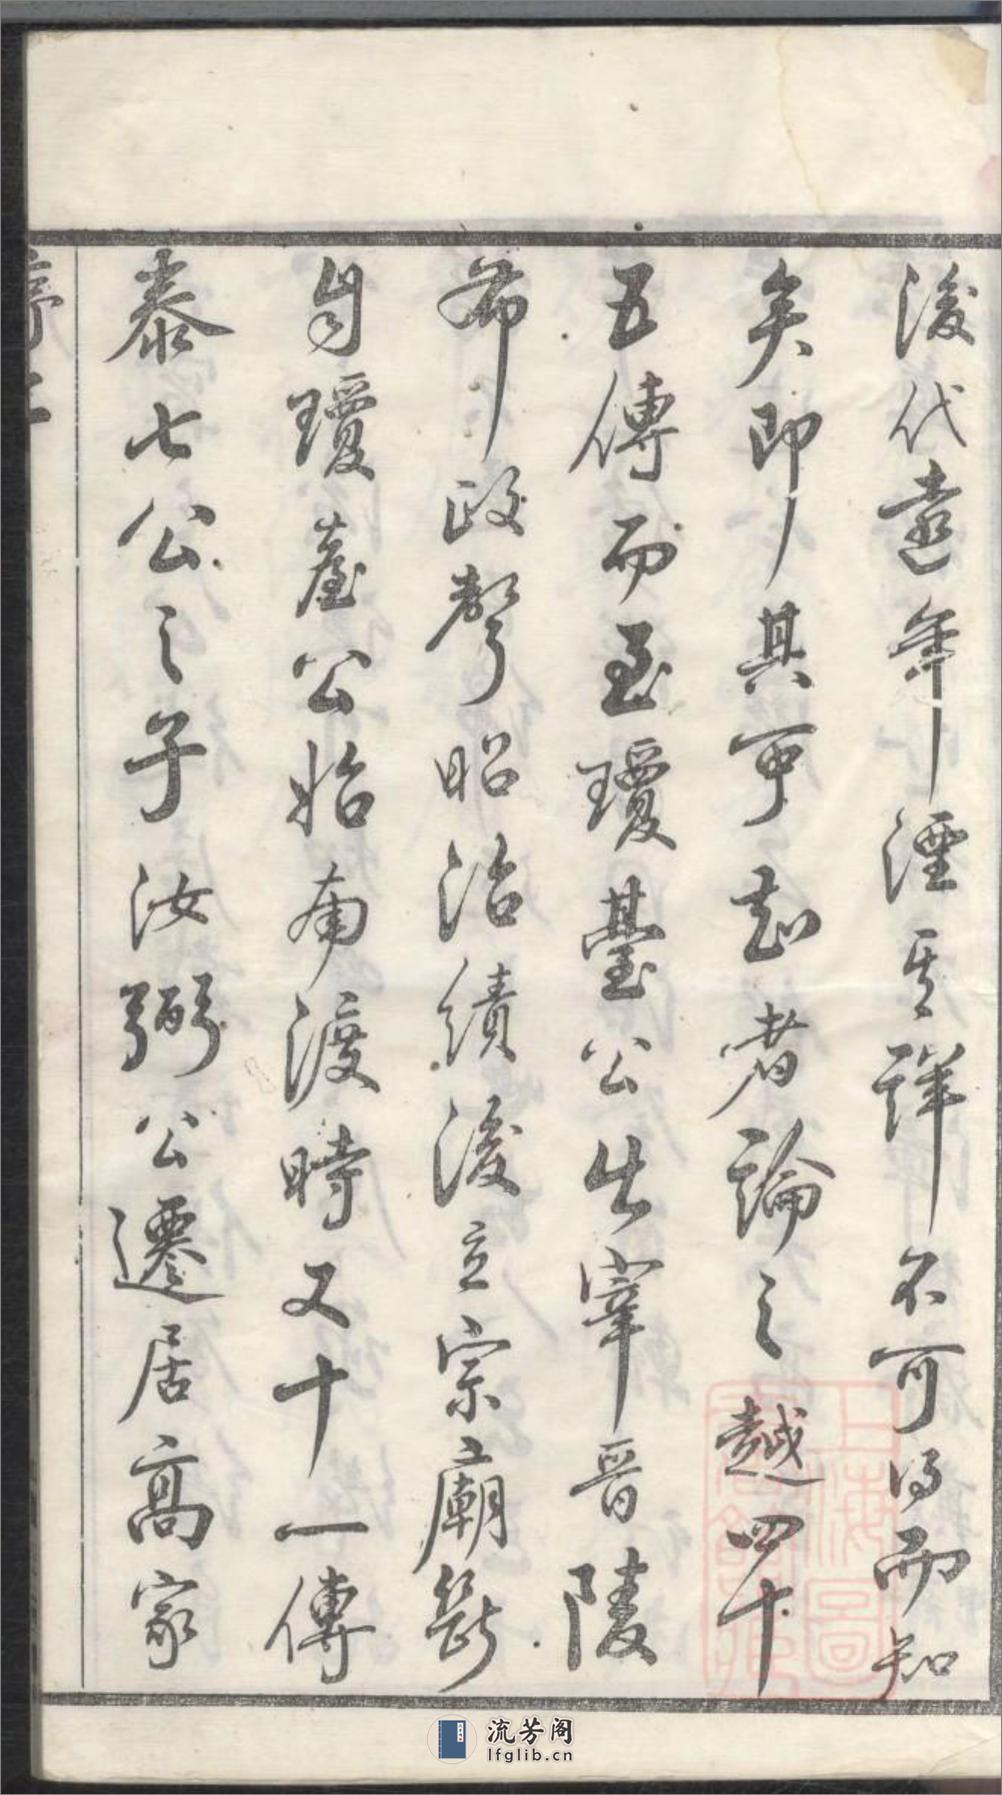 後代遠年湮其詳不可得而知
矣即其可知者論之越四十
五傳而至瓊臺公出宰晉陵
布政聲昭治績後立宗廟斷
自瓊臺公始南渡時又十一傳
泰七公之子汝弼公遷居高家
上海圖
流芳阁
lfglib.cn